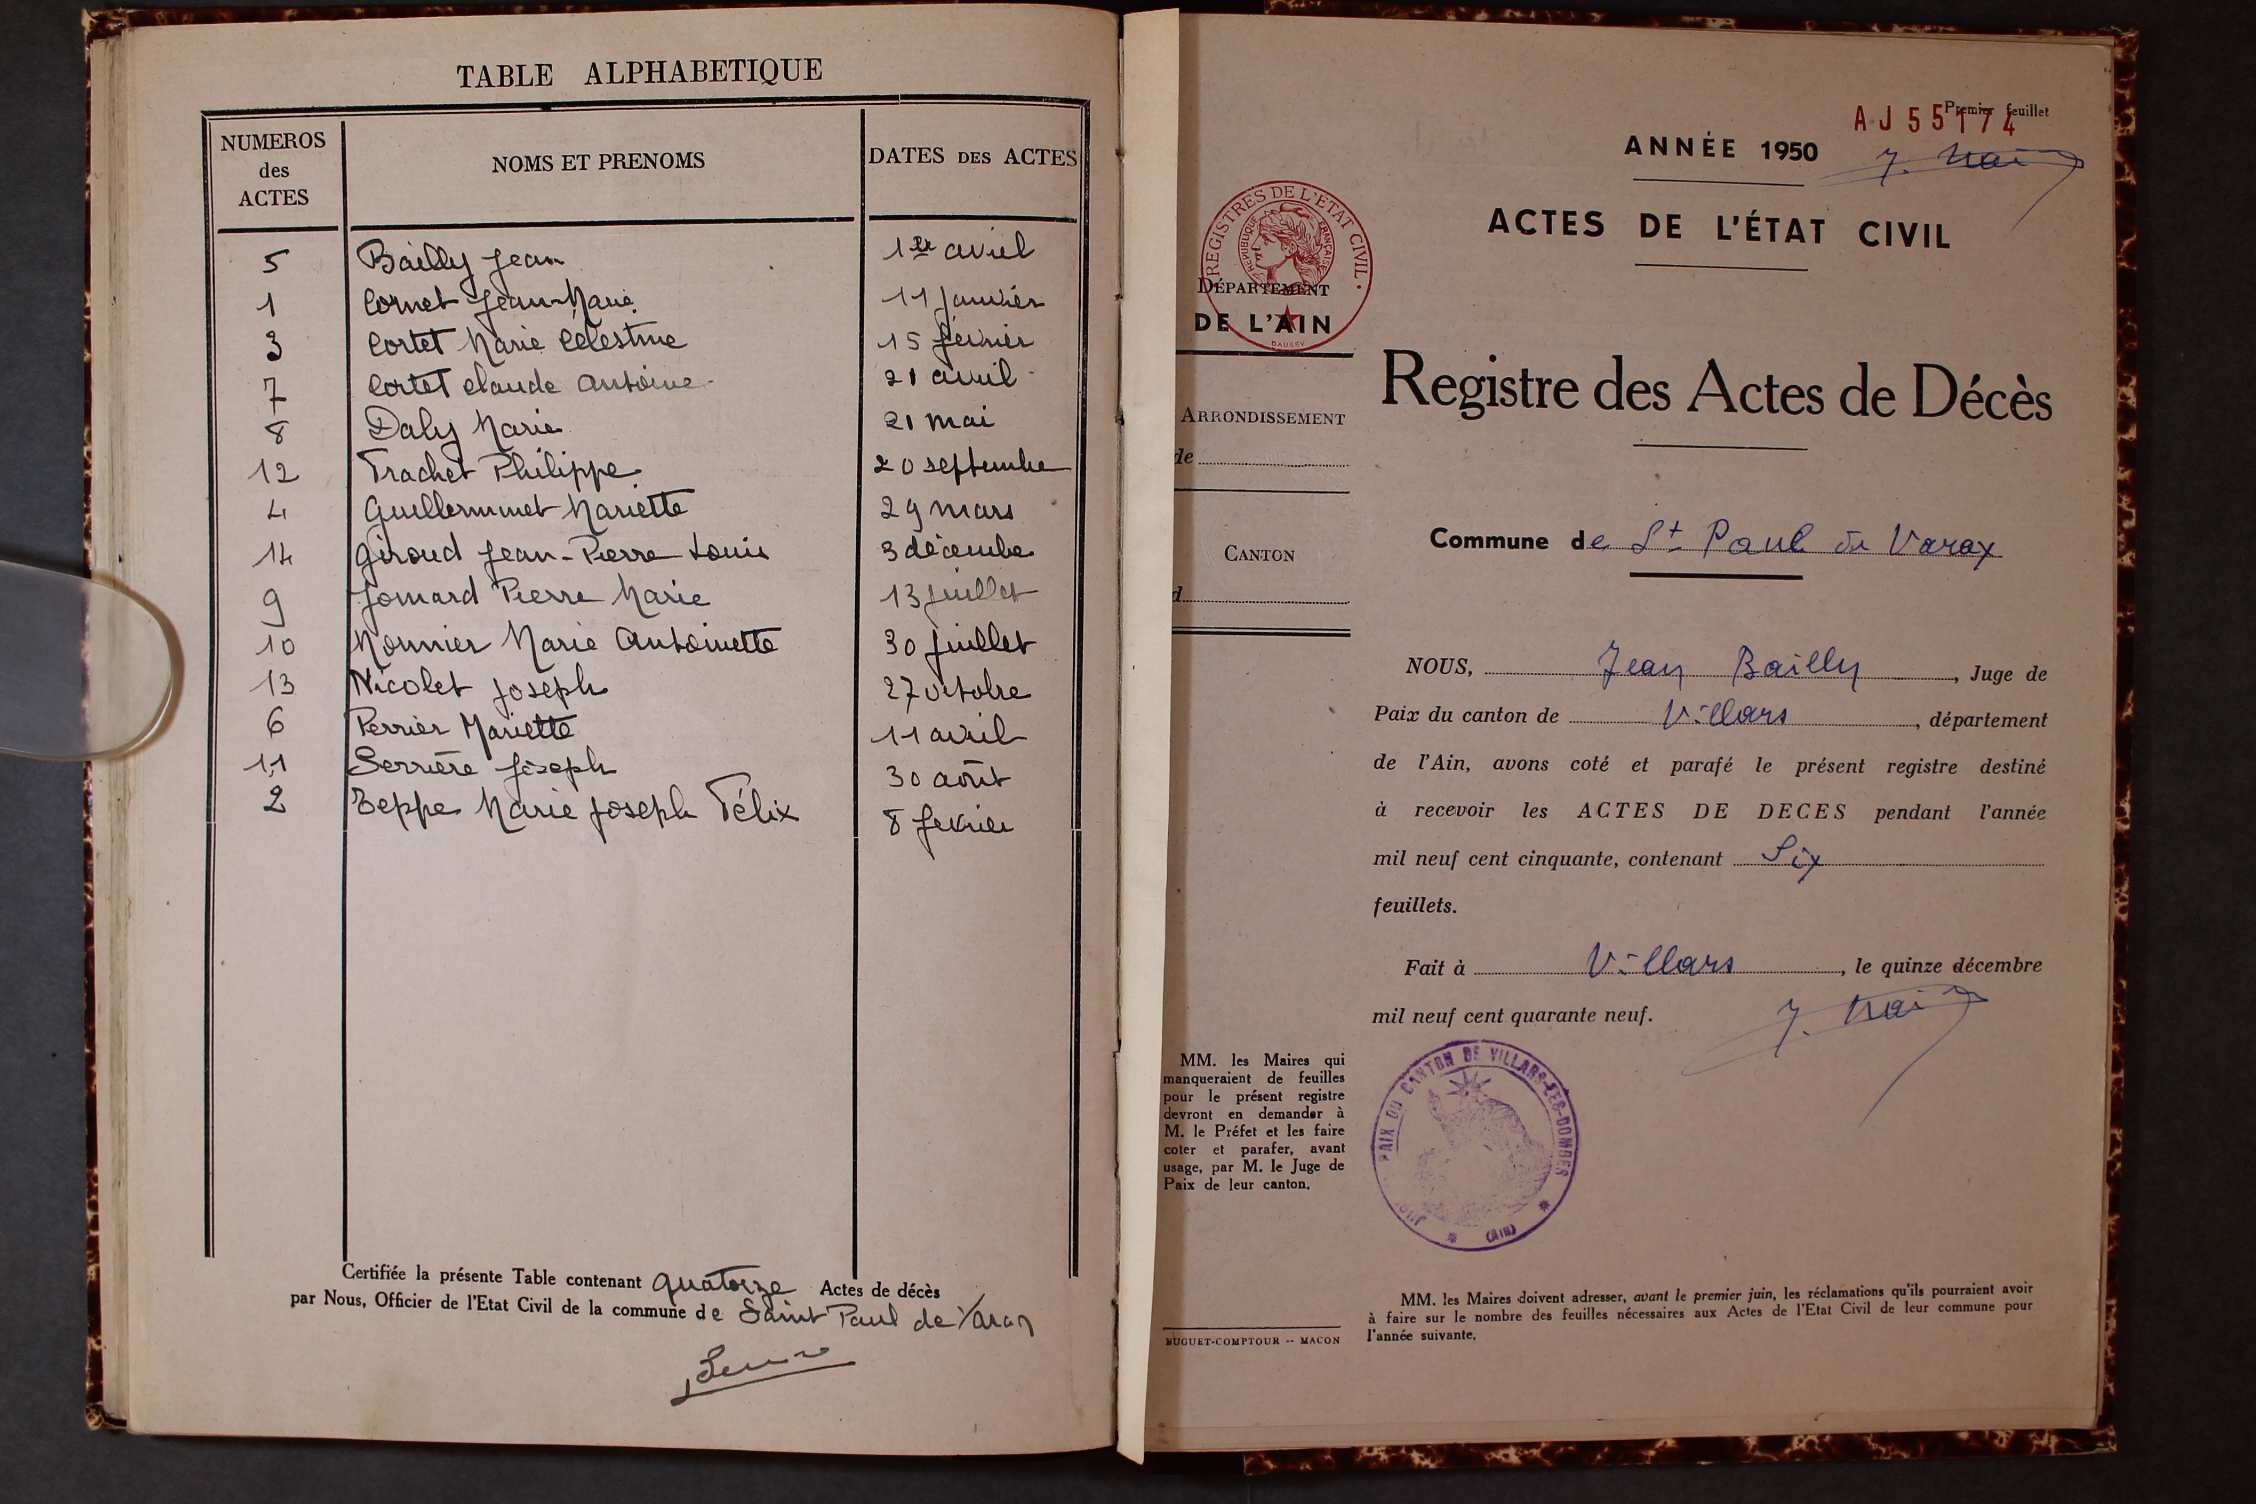 TABLE ALPHABETIQUE
NUMEROS
des
ACTES
NOMS ET PRENOMS
DATES DES ACTES
5 Bailly Jean 1er avril
1 Cornet Jean-Marie 11 janvier
3 Cortet Marie Célestine 15 février
7 Cortet Claude Antoine 21 avril
8 Daly Marie 21 mai
12 Trachet Philippe 20 septembre
4 Guillermmet Mariette 29 mars
14 Giroud Jean-Pierre Louis 3 décembre
9 Jomard Pierre Marie 13 juillet
10 Monnier Marie Antoinette 30 juillet
13 Nicolet Joseph 27 octobre
6 Perrier Mariette 11 avril
11 Serrière Joseph 30 août
2 Teppe Marie Joseph Félix 8 fevrier
Certifiée la présente Table contenant quatorze Actes de décès
par Nous, Officier de l'Etat Civil de la commune de Saint Paul de Varax
Premier feuillet
AJ55174
ANNÉE 1950
ACTES DE L'ÉTAT CIVIL
REGISTRES DE L'ETAT CIVIL
REPUBLIQUE FRANÇAISE
DAUSSY
DÉPARTEMENT
DE L'AIN
ARRONDISSEMENT
de
CANTON
d
Registre des Actes de Décès
Commune de St Paul de Varax
NOUS, Jean Bailly, Juge de
Paix du canton de Villars, département
de l'Ain, avons coté et parafé le présent registre destiné
à recevoir les ACTES DE DECES pendant l'année
mil neuf cent cinquante, contenant Six
feuillets.
Fait à Villars, le quinze décembre
mil neuf cent quarante neuf.
PAIX DU CANTON DE VILLARS-LES-DOMBES
(AIN)
MM. les Maires qui
manqueraient de feuilles
pour le présent registre
devront en demander à
M. le Préfet et les faire
coter et parafer, avant
usage, par M. le Juge de
Paix de leur canton.
BUGUET-COMPTOUR -- MACON
MM. les Maires doivent adresser, avant le premier juin, les réclamations qu'ils pourraient avoir
à faire sur le nombre des feuilles nécessaires aux Actes de l'Etat Civil de leur commune pour
l'année suivante.